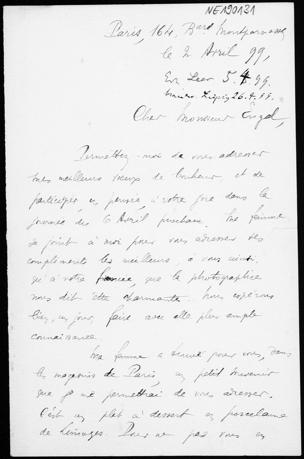 NE120131
Paris, 164, Bard Montparnasse
le 2 Avril 99,
5.4.99.
26.4.99.
Cher Monsieur Engel,
Permettez-moi de vous adresser
mes meilleurs vœux de bonheur et de
participer en pensée à votre joie dans la
journée du 6 Avril prochain. Ma femme
se joint à moi pour vous adresser ses
compliments les meilleurs, à vous ainsi
qu'à votre fiancée, que la photographie
nous dit être charmante. Nous espérons
bien, un jour, faire avec elle plus ample
connaissance.
Ma femme a trouvé pour vous, dans
les magasins de Paris, un petit souvenir
que je me permettrai de vous adresser.
C'est un plat à dessert en porcelaine
de Limoges. Pour ne pas vous en